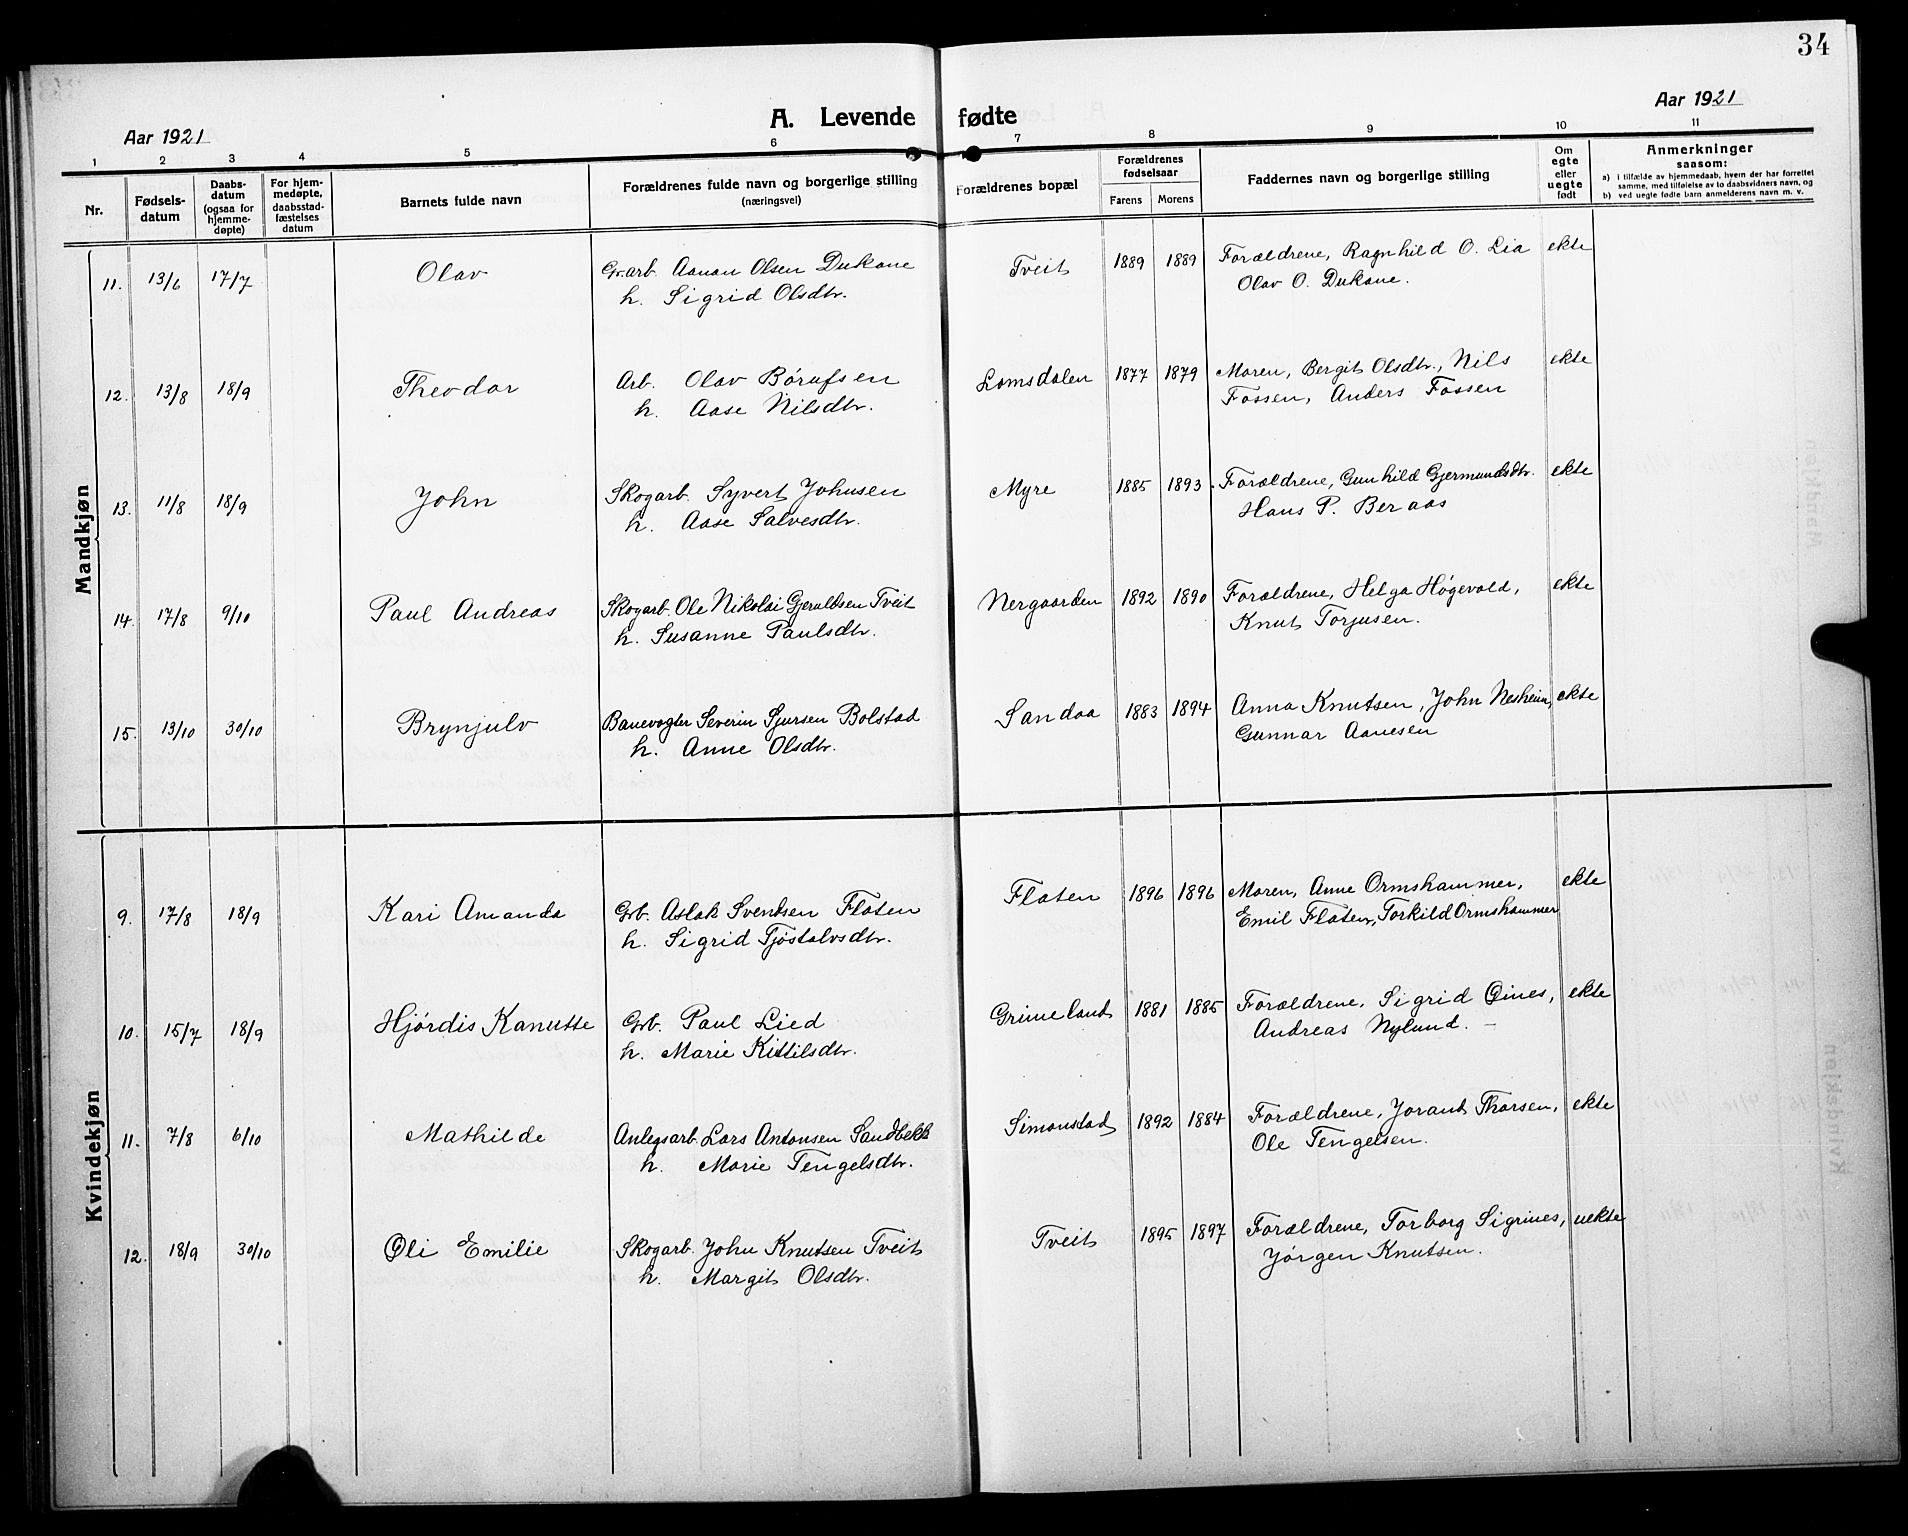 34
Aar 1921
A. Levende fødte
Aar 1921
1 2 3 4 5 6 7 8 9 10 11
Nr.
Fødsels-
datum
Daabs-
datum
(ogsaa for
hjemme-
døpte)
For hjem-
medøpte,
daabsstad-
fæstelses
datum
Barnets fulde navn
Forældrenes fulde navn og borgerlige stilling
(næringsvei)
Forældrenes bopæl
Forældrenes
fødselsaar
Farens Morens
Faddernes navn og borgerlige stilling
Om
egte
eller
uegte
født
Anmerkninger
saasom:
a) i tilfælde av hjemmedaab, hvem der har forrettet
samme, med tilføielse av to daabsvidners navn, og
b) ved uegte fødte barn anmelderens navn m. v.
Mandkjøn
11. 13/6 17/7 Olav Gr.arb. Aanan Olsen Dukane Tveit 1889 1889 Forældrene, Ragnhild O. Lia ekte
h. Sigrid Olsdtr. Olav O. Dukane.
12. 13/8 18/9 Theodor Arb. Olav Børufsen Lomsdalen 1877 1879 Moren, Bergit Olsdtr., Nils ekte
h. Aase Nilsdtr. Fossen, Anders Fossen
13. 11/8 18/9 John Skogarb. Syvert Johnsen Myre 1885 1893 Forældrene, Gunhild Gjermundsdtr. ekte
h. Aase Salvesdtr. Hans P. Beraas
14. 17/8 9/10 Paul Andreas Skogarb. Ole Nikolai Gjeruldsen Tveit Nergaarden 1892 1890 Forældrene, Helga Høgevold, ekte
h. Susanne Paulsdtr. Knut Torjusen.
15. 13/10 30/10 Brynjulv Banevogter Severin Sjursen Bolstad Sandaa 1883 1894 Anna Knutsen, John Nesheim, ekte
h. Anne Olsdtr. Gunnar Aanesen
Kvindekjøn
9. 17/8 18/9 Kari Amanda Grb. Aslak Svendsen Flaten Flaten 1896 1896 Moren, Anne Ormshammer, ekte
h. Sigrid Tjøstolvsdtr. Emil Flaten, Torkild Ormshammer
10. 15/7 18/9 Hjørdis Kanutte Grb. Paul Lied Grimeland 1881 1885 Forældrene, Sigrid Gines, ekte
h. Marie Kittilsdtr. Andreas Nylund. –
11. 7/8 6/10 Mathilde Anlegsarb. Lars Antonsen Sandbekk Simonstad 1892 1884 Forældrene, Jorant Thorsen, ekte
h. Marie Tengelsdtr. Ole Tengelsen.
12. 18/9 30/10 Oli Emilie Skogarb. John Knutsen Tveit Tveit 1895 1897 Forældrene, Torborg Sigrines, uekte
h. Margit Olsdtr. Jørgen Knutsen.